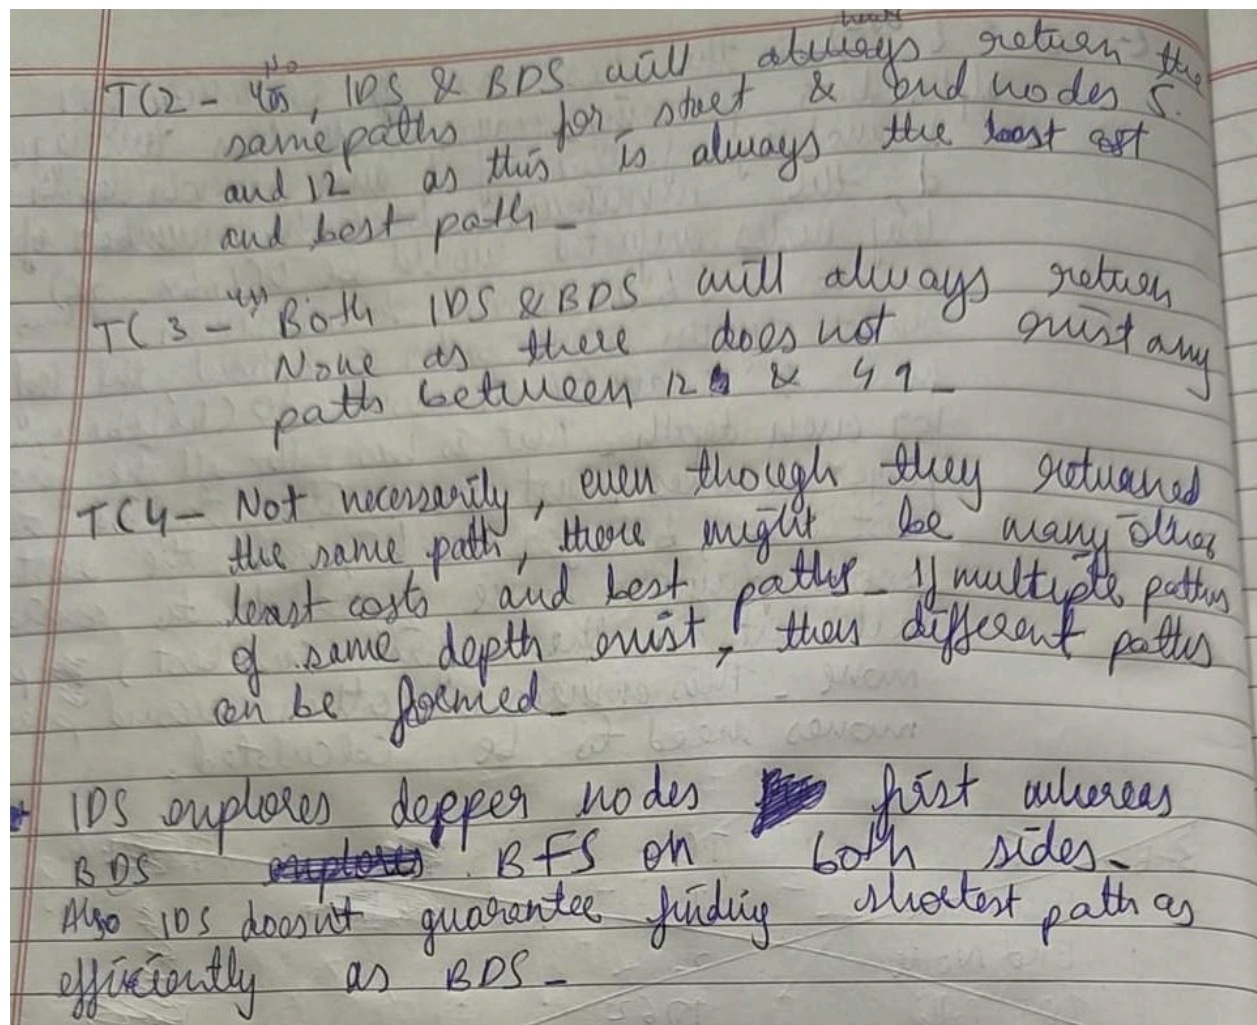 TC2 - No, IDS & BDS will always return the
same paths for start & end nodes 5
and 12 as this is always the least cost
and best path -
TC3 - Both IDS & BDS will always return
None as there does not exist any
path between 12 & 49 -
TC4 - Not necessarily, even though they returned
the same path, there might be many other
least costs and best paths - If multiple paths
of same depth exist, then different paths
can be formed -
IDS explores depper nodes first whereas
BDS BFS on both sides -
Also IDS doesn't guarantee finding shortest path as
efficiently as BDS -